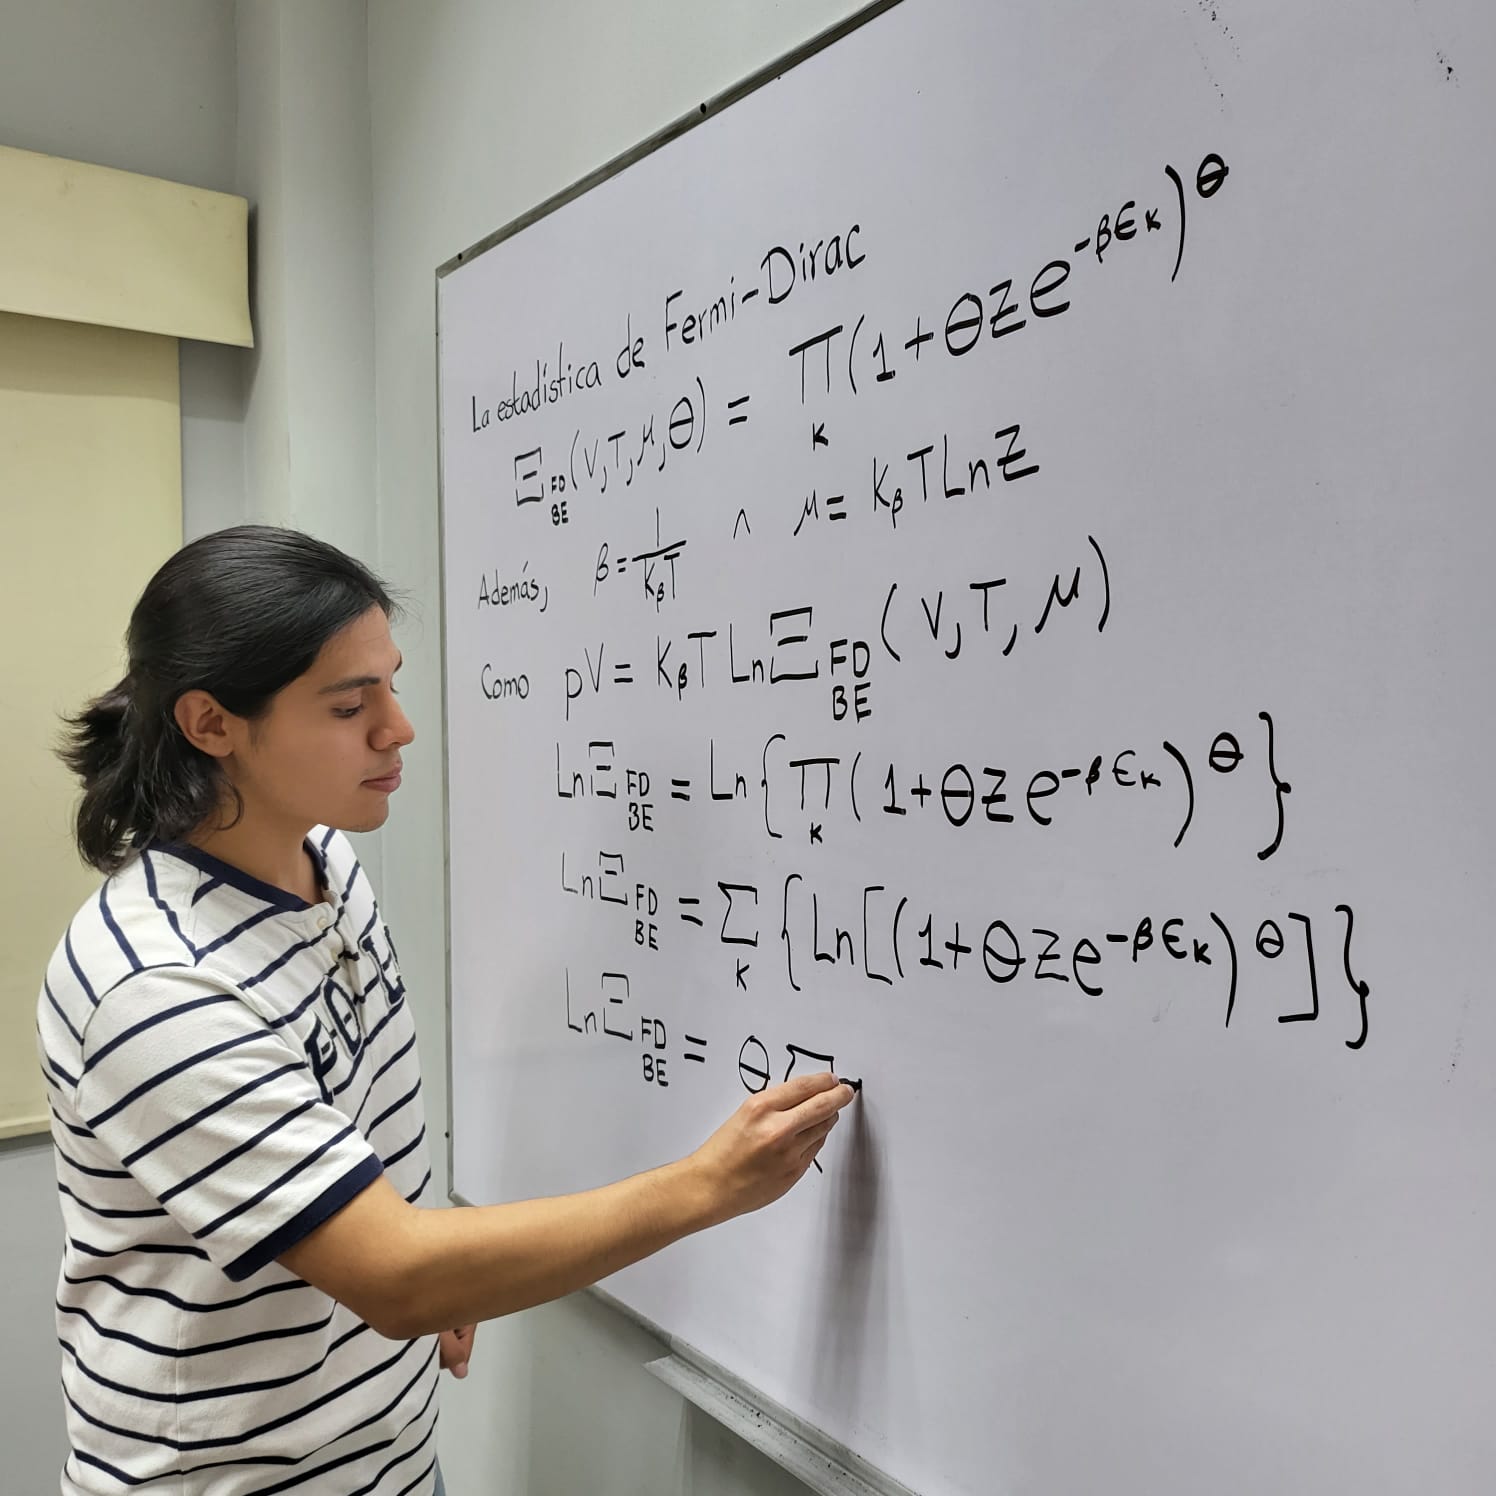 La estadística de Fermi-Dirac
Ξ FD BE (V, T, μ, θ) = ∏ k (1 + θze^-βϵk)^θ
Además, β = 1/KβT ∧ μ = KβT Ln z
Como pV = KβT Ln Ξ FD BE (V, T, μ)
Ln Ξ FD BE = Ln {∏ k (1 + θze^-βϵk)^θ}
Ln Ξ FD BE = ∑ k {Ln [(1 + θze^-βϵk)^θ]}
Ln Ξ FD BE = θ ∑